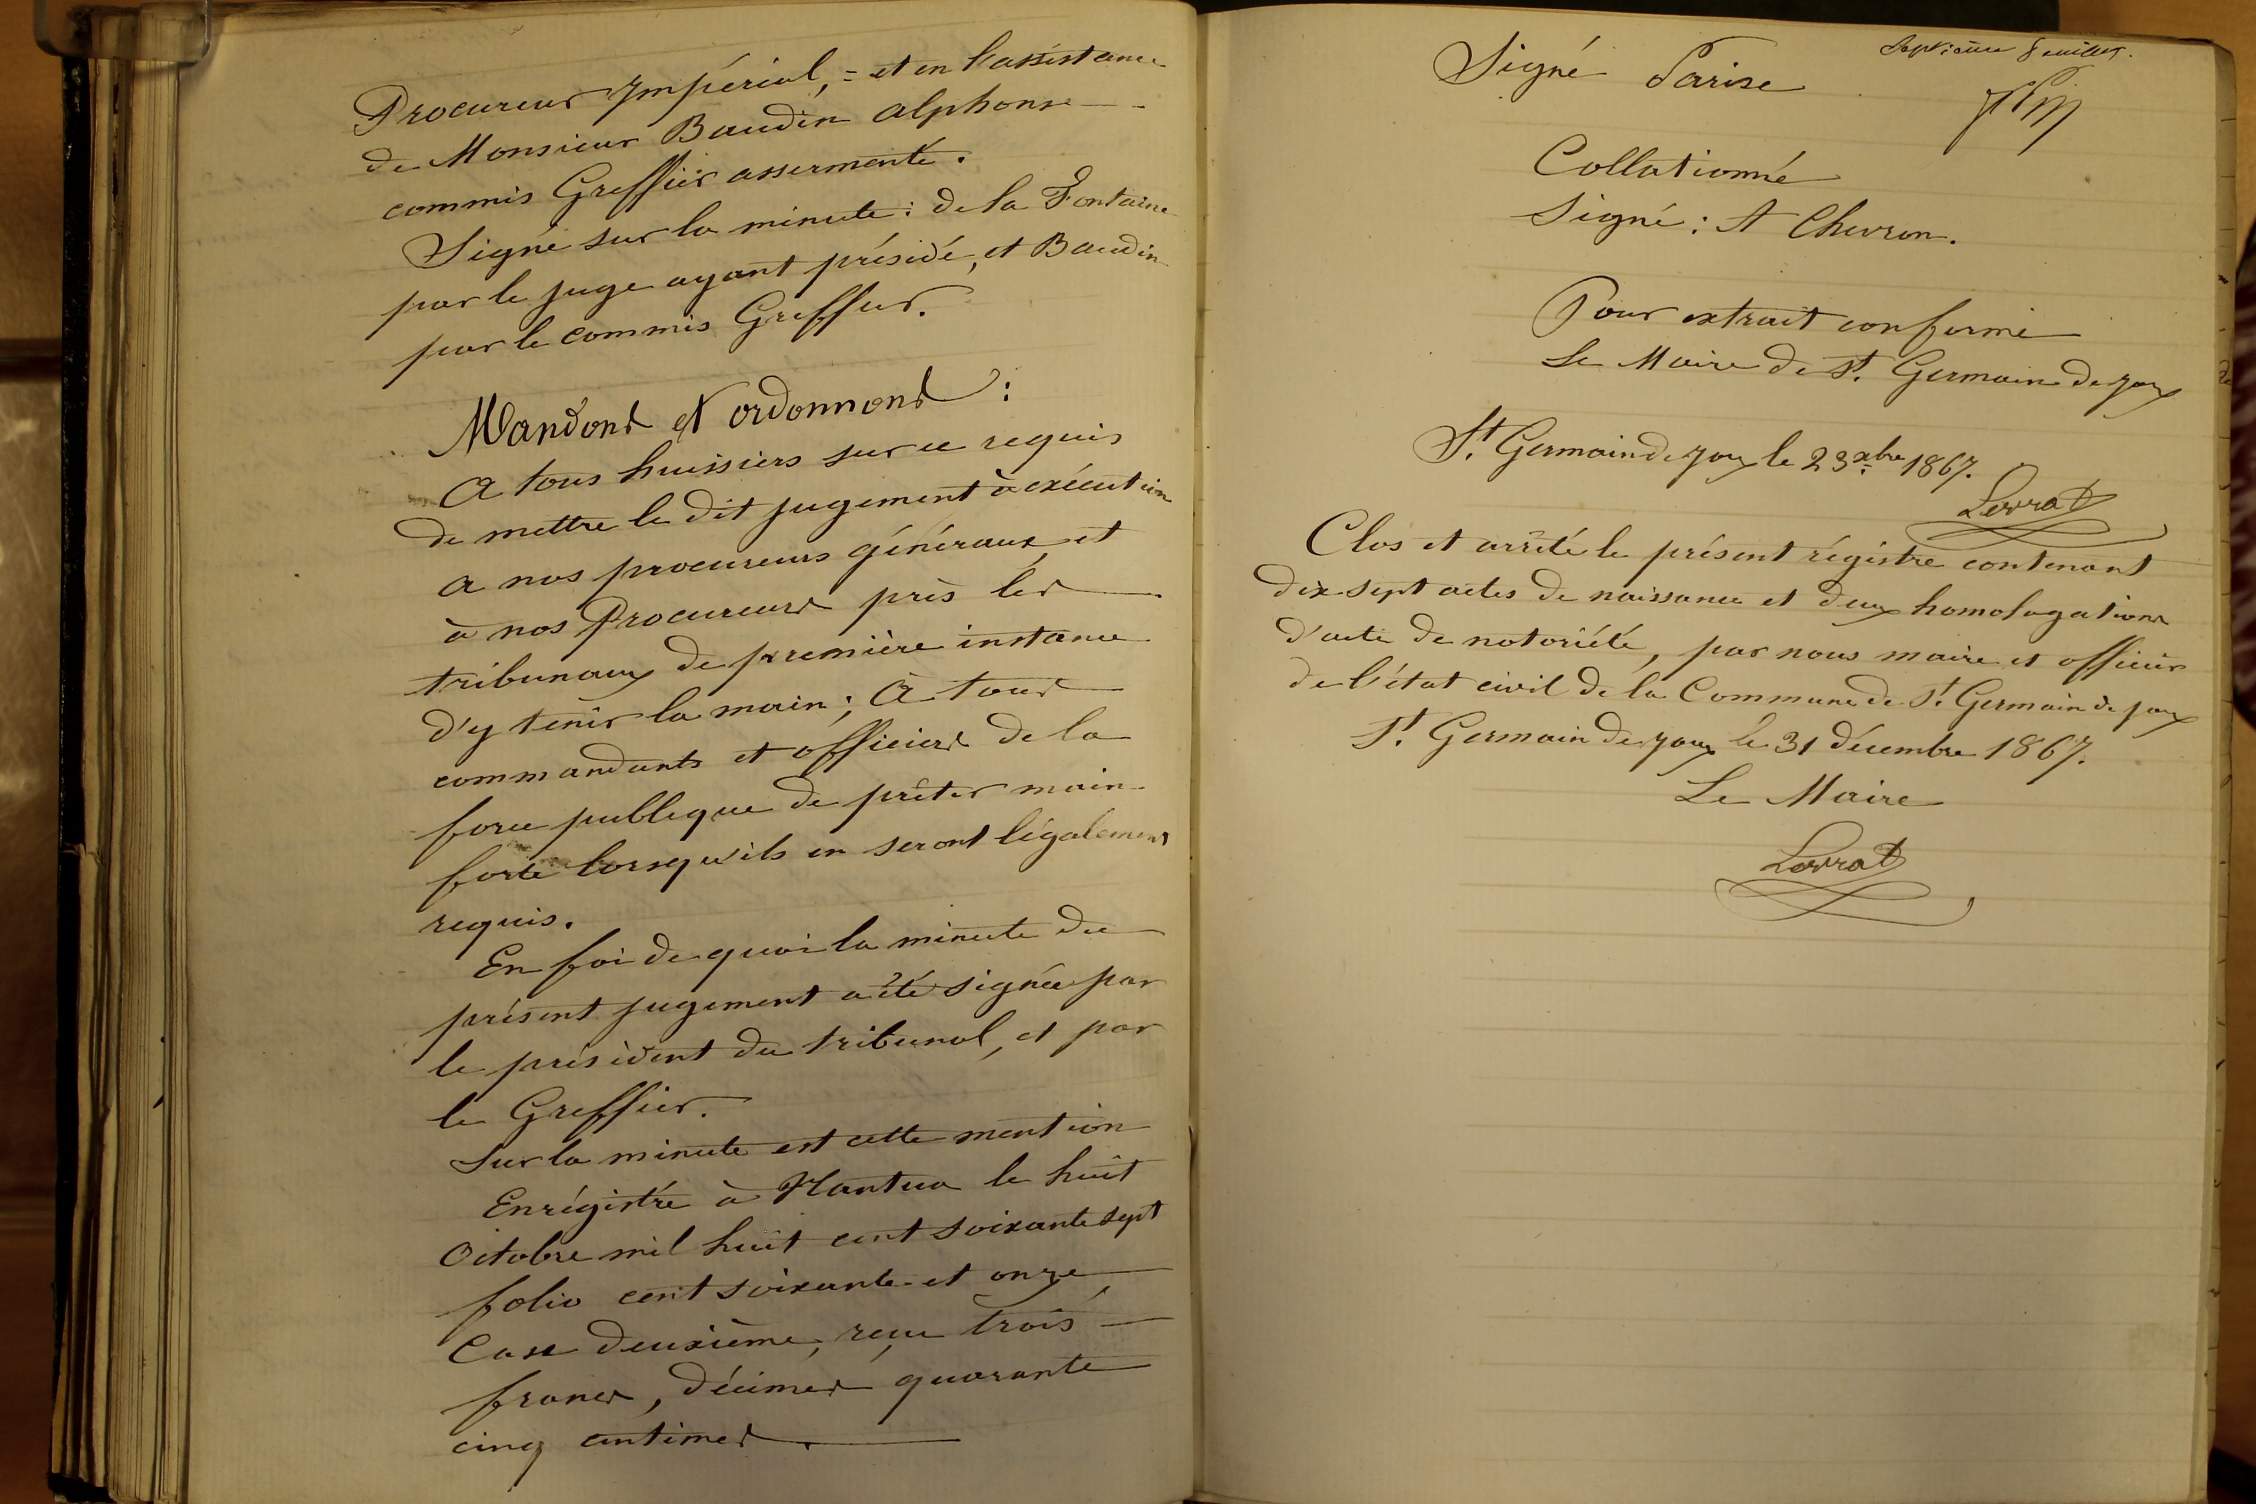 Procureur Impérial, = et en l'assistance
de Monsieur Baudin Alphonse
commis Greffier assermenté.
Signé sur la minute : de la Fontaine
par le juge ayant présidé, et Baudin
par le commis Greffier.
Mandons et ordonnons :
A tous huissiers sur ce requis
de mettre le dit jugement à exécution
a nos procureurs généraux, et
à nos Procureurs près les
tribunaux de première instance
d'y tenir la main ; A tous
commandants et officiers de la
force publique de prêter main
forte lorsqu'ils en seront légalement
requis.
En foi de quoi la minute du
présent jugement a été signée par
le président du tribunal, et par
le Greffier.
Sur la minute est cette mention
Enrégistré à Nantua le huit
Octobre mil huit cent soixante sept
folio cent soixante et onze,
Case deuxième, reçu trois
francs, décimes quarante
cinq centimes.
Septième feuillet.
Signé Parise
Collationné
Signé : A Chevron.
Pour extrait conforme
Le Maire de St. Germain de Joux
St. Germain de Joux le 23 xbre 1867.
Lerrat
Clos et arrêté le présent régistre contenant
dix sept actes de naissance et deux homologations
d'acte de notoriété, par nous maire et officier
de l'état civil de la Commune de St. Germain de Joux
St. Germain de Joux le 31 décembre 1867.
Le Maire
Lerrat